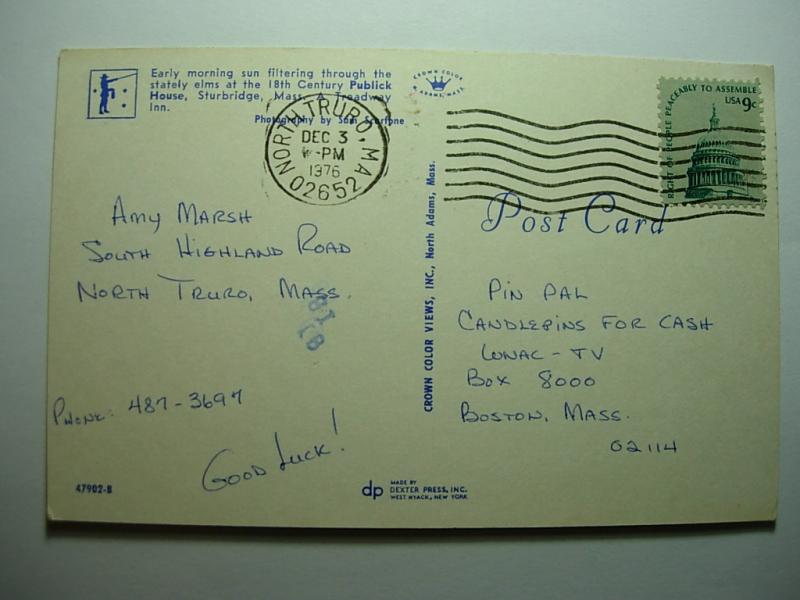 Early morning sun filtering through the
stately elms at the 18th Century Publick
House, Sturbridge, Mass. A Treadway
Inn.
Photography by Sam Scarfone
CROWN COLOR
N. ADAMS, MASS.
NORTH TRURO, MA
DEC 3
PM
1976
02652
RIGHT OF PEOPLE PEACEABLY TO ASSEMBLE
USA 9c
Post Card
Amy Marsh
South Highland Road
North Truro, Mass.
Phone: 487-3697
Good Luck!
CROWN COLOR VIEWS, INC., North Adams, Mass.
Pin Pal
Candlepins for Cash
WNAC-TV
Box 8000
Boston, Mass.
02114
47902-B
dp
MADE BY
DEXTER PRESS, INC.
WEST NYACK, NEW YORK